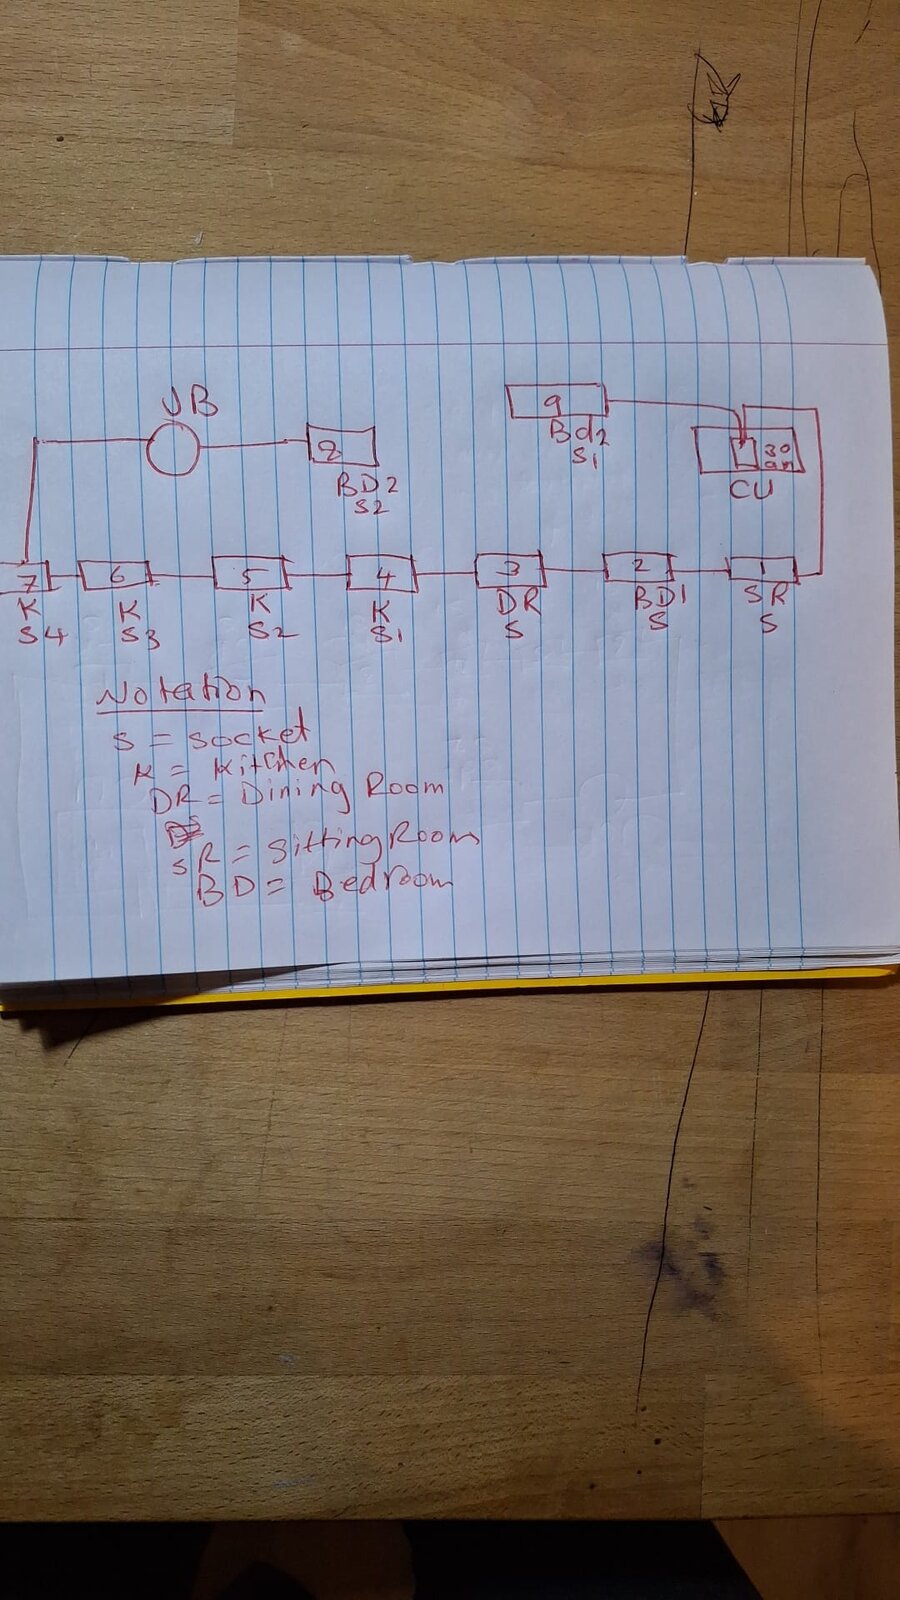 JB
9
Bd2
S1
30
am
CU
8
BD2
S2
7
K
S4
6
K
S3
5
K
S2
4
K
S1
3
DR
S
2
BD1
S
1
SR
S
Notation
S = socket
K = Kitchen
DR = Dining Room
SR = Sitting Room
BD = Bedroom